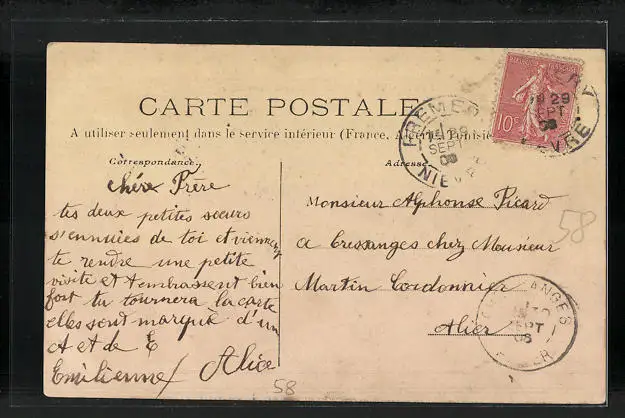 CARTE POSTALE
A utiliser seulement dans le service intérieur (France, Algérie, Tunisie
Correspondance
Adresse
chére Frère
tes deux petites soeurs
s'ennuiées de toi et viennent
te rendre une petite
visite et t'embrassent bien
fort tu tournera la carte
elles sont marquè d'un
A et de E
Emilienne/ Alice
Monsieur Alphonse Picard
a Cressanges chez Monsieur
Martin Cordonnier
Alier
58
58
REPUBLIQUE FRANÇAISE
10c
PREMERY
29
SEPT
08
NIEVRE
29
SEPT
08
NIEVRE
CRESSANGES
SEPT
08
ALLIER